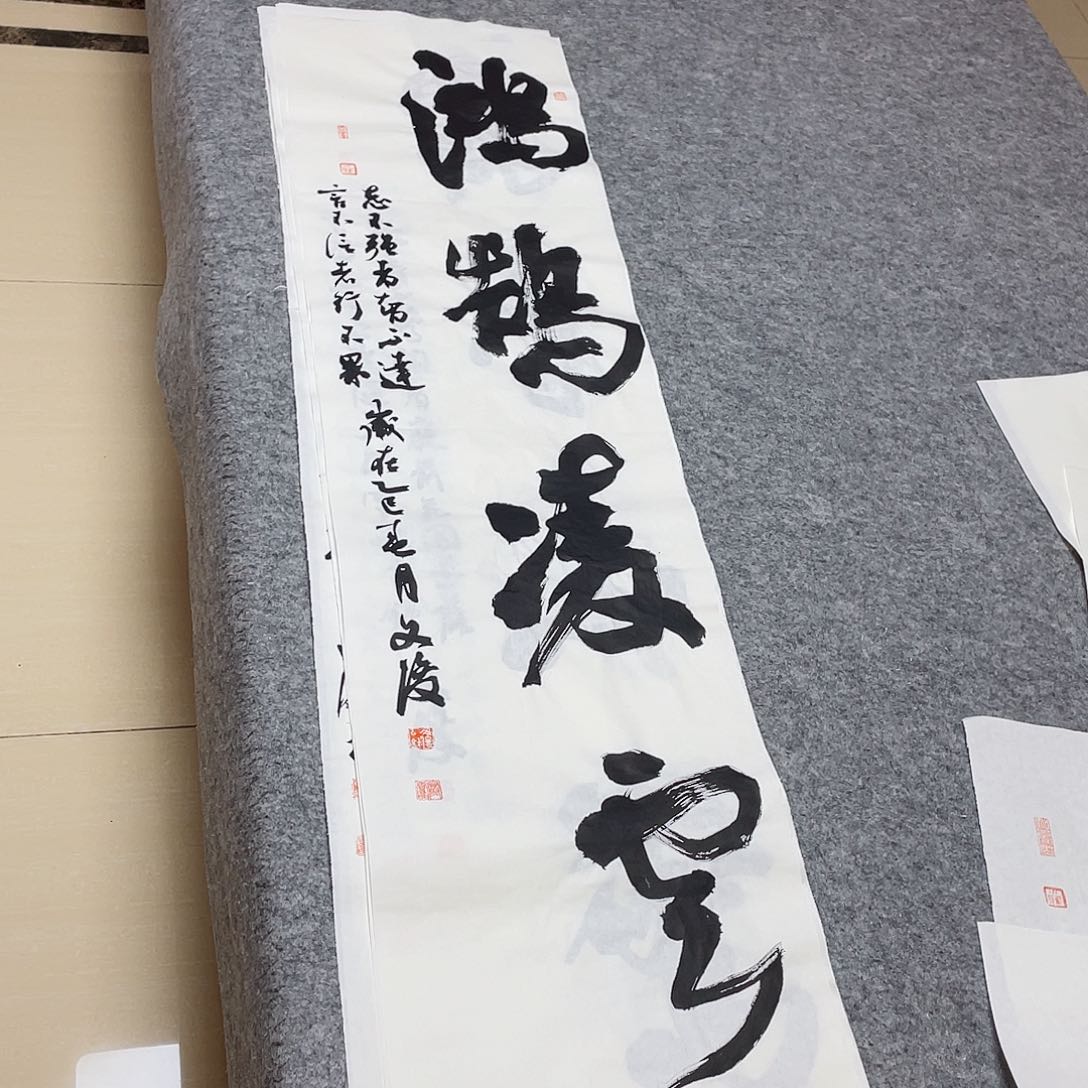 鸿鹄凌云
志不强者智不达
言不信者行不果 岁在乙巳春月 文俊